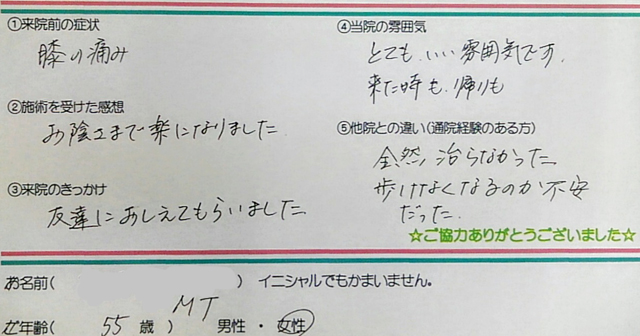 ①来院前の症状
膝の痛み
②施術を受けた感想
お陰さまで楽になりました
③来院のきっかけ
友達におしえてもらいました
④当院の雰囲気
とても、いい雰囲気です。
来た時も、帰りも
⑤他院との違い(通院経験のある方)
全然、治らなかった
歩けなくなるのか不安
だった。
☆ご協力ありがとうございました☆
お名前( ) イニシャルでもかまいません。
MT
ご年齢( 55 歳) 男性・女性